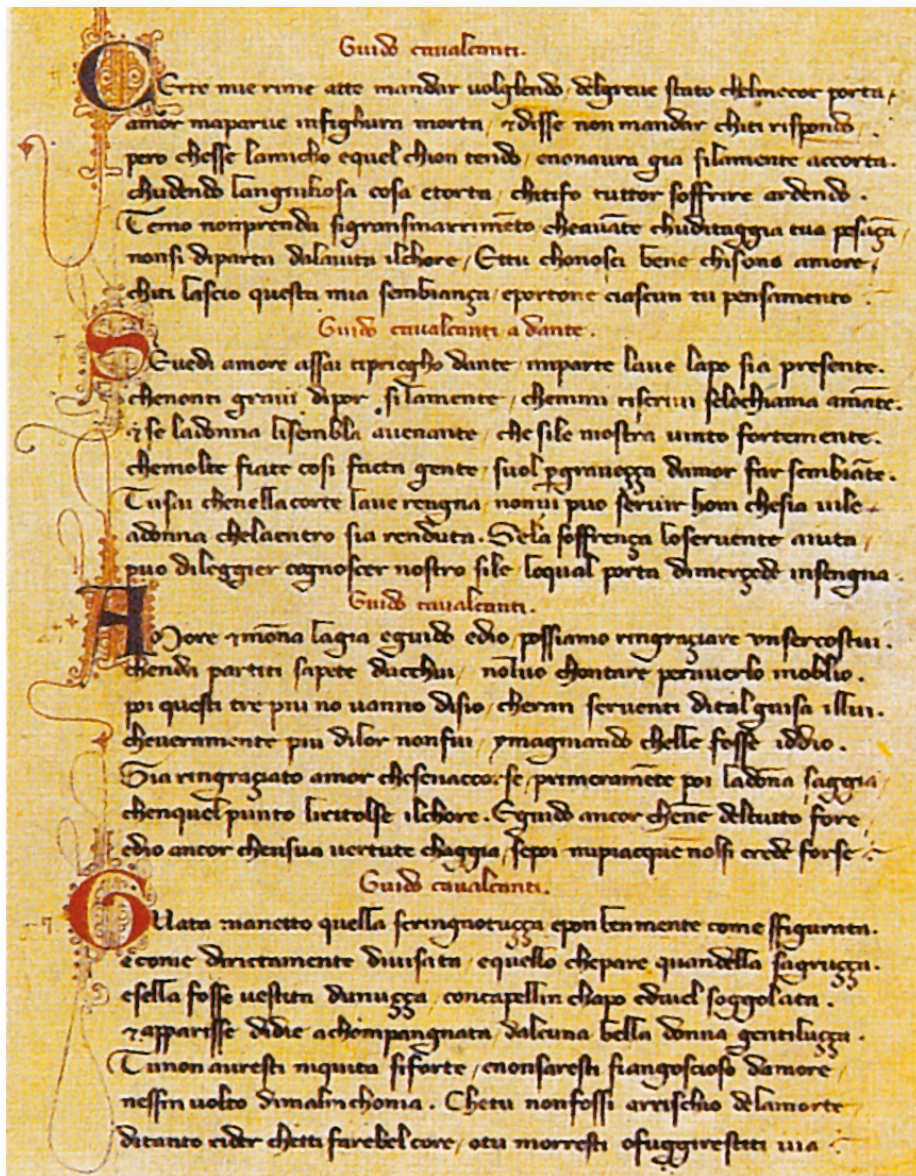 Guido cavalcanti.
CErte mie rime atte mandar uolglendo / delgreve stato chelmecor porta /
amor maparue infighura morta / ⁊disse non mandar chiti rispondo /
pero chesse lamicho equel chion tendo / enonaura gia silamente accorta.
chudendo langiuliosa cosa etorta / chitifo tuttor soffrire ardendo .
Temo nonprenda sigransmarrimēto cheauāte chuditaggia tua pesāça
nonsi diparta dalauita ilchore / Ettu chonosci bene chisono amore /
chiti lascio questa mia sembiança / eportone ciascun tu pensamento
Guido cavalcanti a dante .
SEuedi amore assai tiprieghо dante / inparte laue lapo sia presente.
chenonti graui dipor silamente / chemmi riscriui selochiama amāte.
⁊ se ladonna lisembla auenante / che sile mostra uinto fortemente .
chemolte fiate cosi facta gente / suol ꝑgraueçça damor far sembiāte.
Tusai chenellacorte laue rengna / nonui puo seruir hom chesia uile
adonna chelaentro sia renduta . Sela soffrença loseruente aiuta /
puo dileggier cognoscer nostro stile loqual porta dimerçede insengna
Guido cavalcanti.
AMore ⁊mōna lagia eguido edio / possiamo ringraçiare unsercostui .
chenda partiti sapete dacchui / nōluo chontare peraverlo inoblio .
poi questi tre piu no uanno disio / cheran seruenti dital guisa illui .
cheueramente piu dilor nonfui / ymaginando chelle fosse iddio .
Sia ringraçiato amor chesenaccorse / primeramēte poi ladōna saggia /
chenquel punto liritolse ilchore . Eguido ancor chenē deltutto fore /
edio ancor chensua uertute chaggia / sepoi mipiacque nolsi crede forse
Guido cavalcanti.
GUata manetto quella scringnotuçça epon benmente come sfigurata .
ecome dirictamente diuisata / equello chepare quandella sagruçça .
esella fosse uestita dunuçça / concapellin chapo ediuel soggolata .
⁊apparisse didie achompangnata / dalcuna bella donna gentiluçça .
Tunon auresti niquita siforte / enonsaresti siangoscioso damore
nessin uolto dimalinchonia . Chetu nonfossi arrischio delamorte
ditanto rider chetti farebel core / otu morresti ofuggirestiti uia